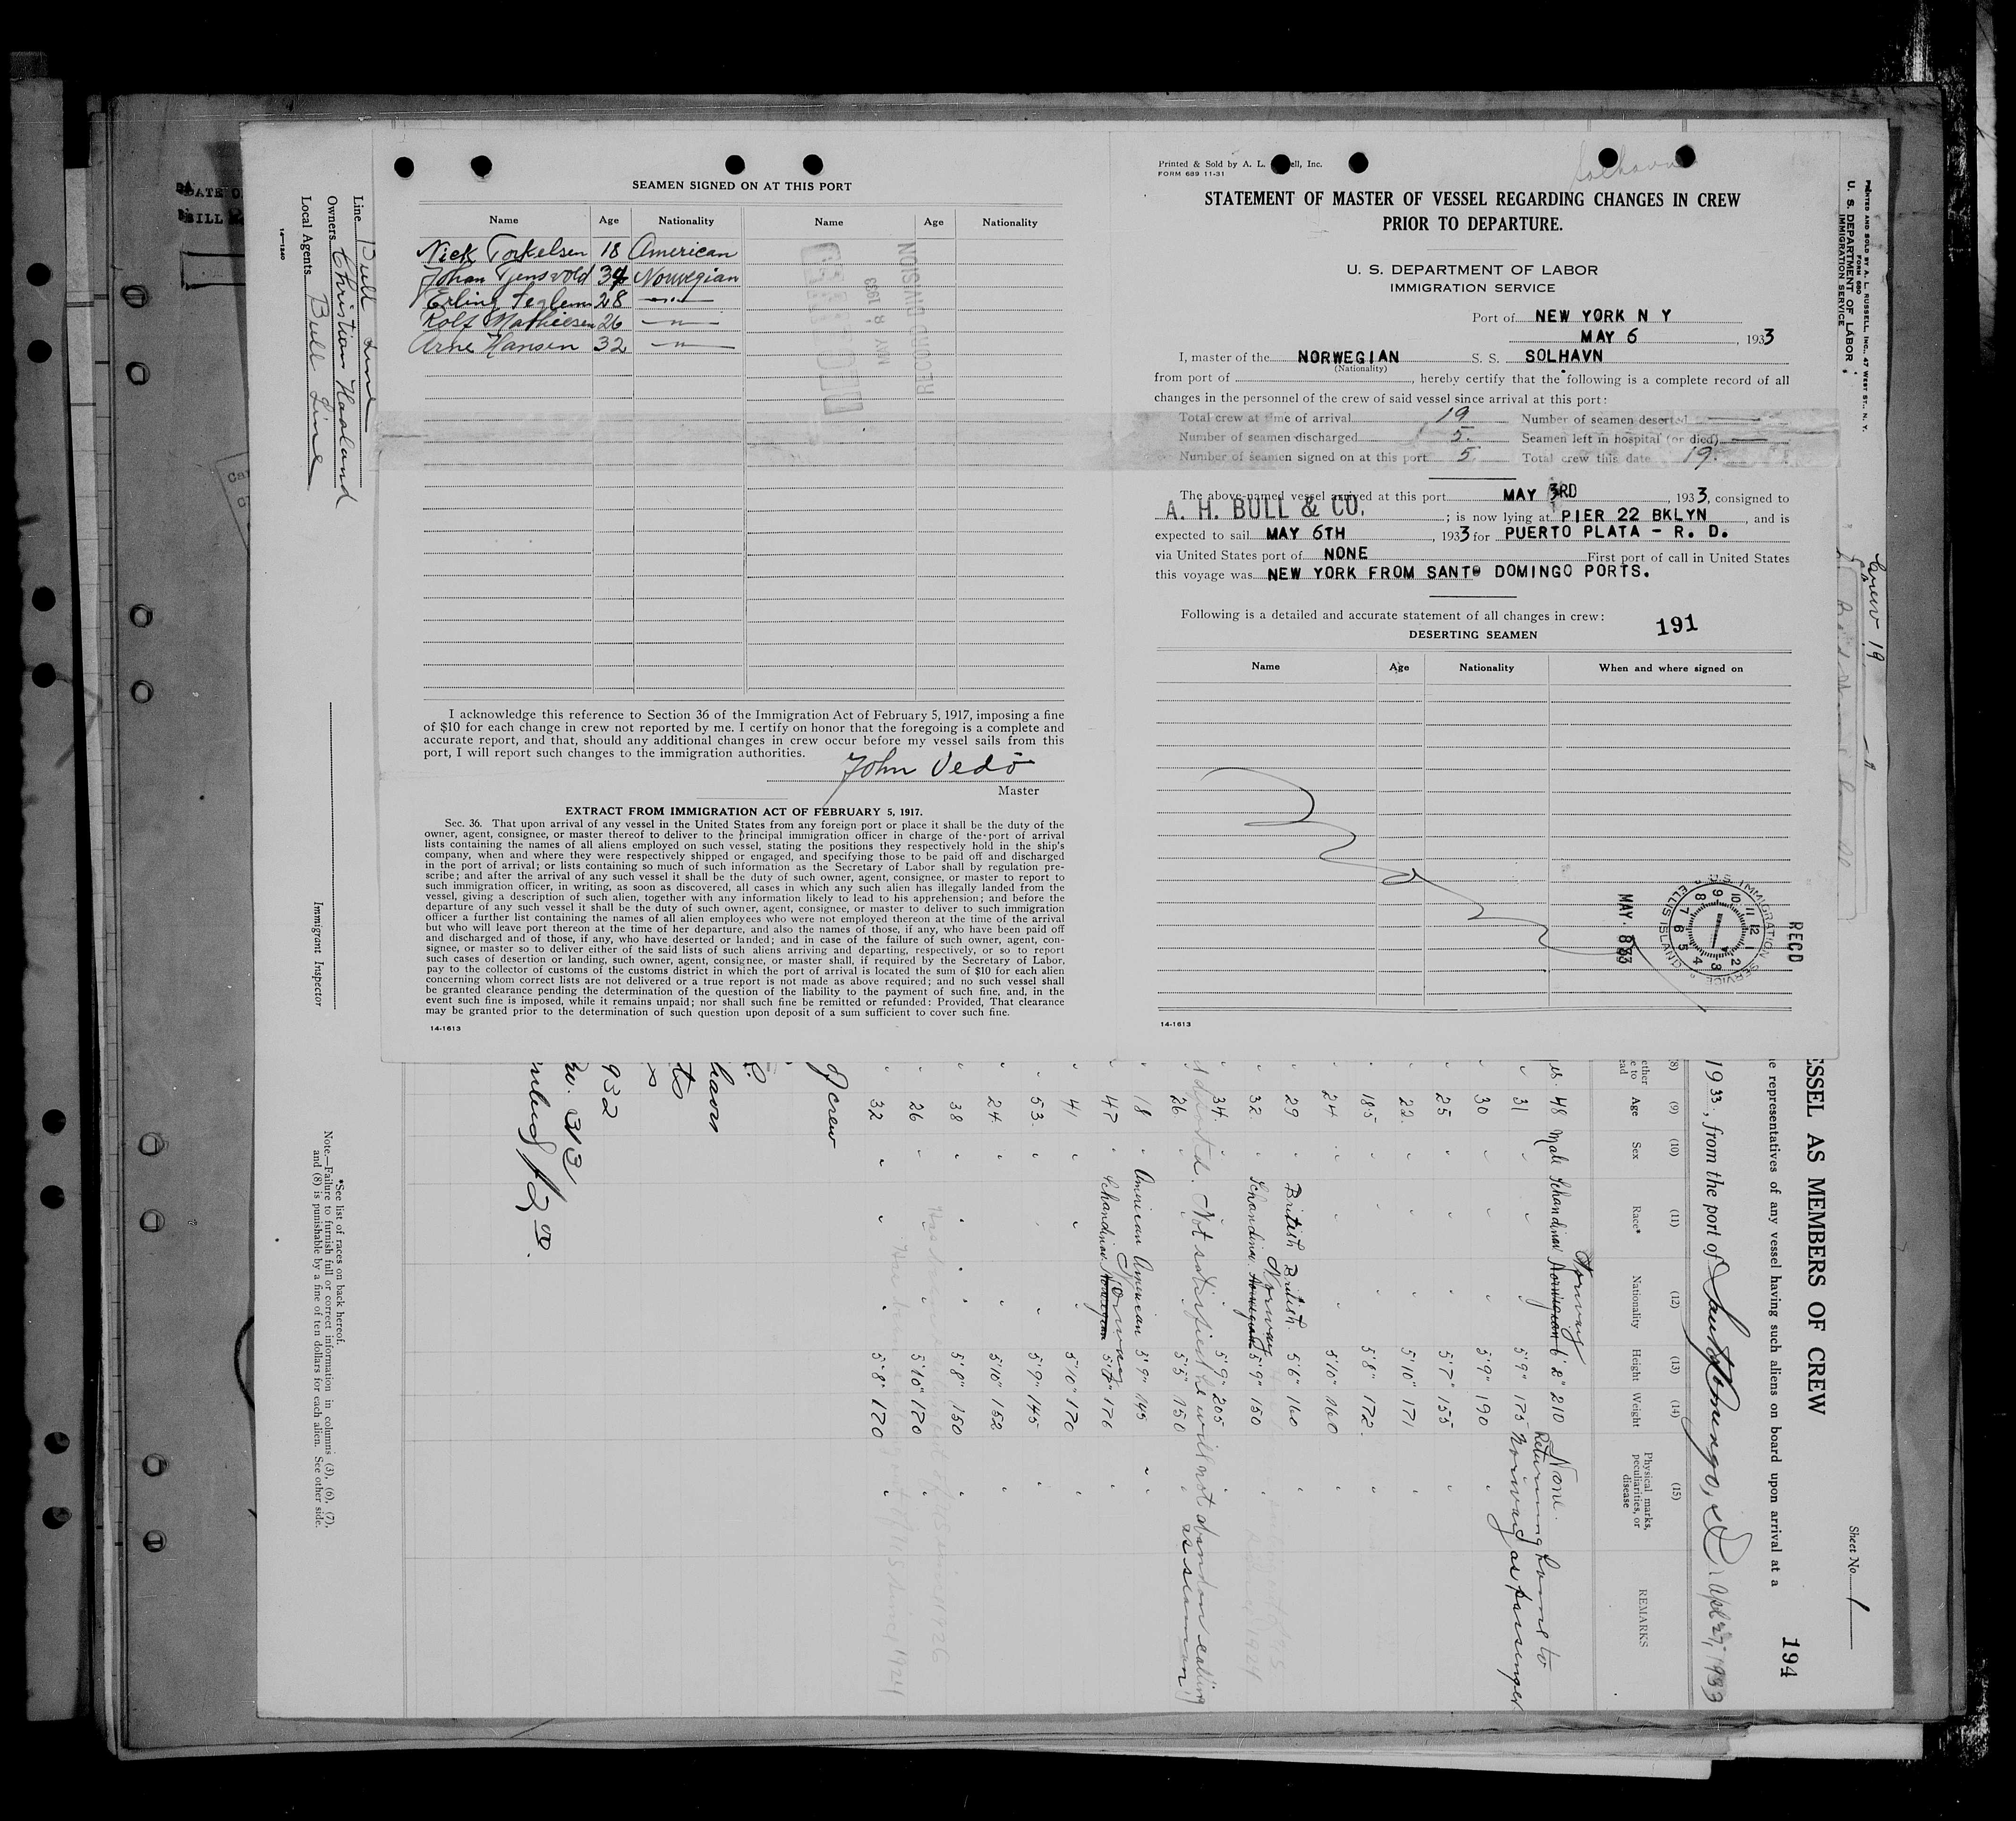 SEAMEN SIGNED ON AT THIS PORT
Name Age Nationality Name Age Nationality
Nick Torkelsen 18 American
Johan Tjensvold 34 Norwegian
Erling 28 —"—
Rolf Mathiesen 26 —"—
Arne Hansen 32 —"—
MAY 8 1933
RECORD DIVISION
I acknowledge this reference to Section 36 of the Immigration Act of February 5, 1917, imposing a fine
of $10 for each change in crew not reported by me. I certify on honor that the foregoing is a complete and
accurate report, and that, should any additional changes in crew occur before my vessel sails from this
port, I will report such changes to the immigration authorities.
John Vedö
Master
EXTRACT FROM IMMIGRATION ACT OF FEBRUARY 5, 1917.
Sec. 36. That upon arrival of any vessel in the United States from any foreign port or place it shall be the duty of the
owner, agent, consignee, or master thereof to deliver to the principal immigration officer in charge of the port of arrival
lists containing the names of all aliens employed on such vessel, stating the positions they respectively hold in the ship's
company, when and where they were respectively shipped or engaged, and specifying those to be paid off and discharged
in the port of arrival; or lists containing so much of such information as the Secretary of Labor shall by regulation pre-
scribe; and after the arrival of any such vessel it shall be the duty of such owner, agent, consignee, or master to report to
such immigration officer, in writing, as soon as discovered, all cases in which any such alien has illegally landed from the
vessel, giving a description of such alien, together with any information likely to lead to his apprehension; and before the
departure of any such vessel it shall be the duty of such owner, agent, consignee, or master to deliver to such immigration
officer a further list containing the names of all alien employees who were not employed thereon at the time of the arrival
but who will leave port thereon at the time of her departure, and also the names of those, if any, who have been paid off
and discharged and of those, if any, who have deserted or landed; and in case of the failure of such owner, agent, con-
signee, or master so to deliver either of the said lists of such aliens arriving and departing, respectively, or so to report
such cases of desertion or landing, such owner, agent, consignee, or master shall, if required by the Secretary of Labor,
pay to the collector of customs of the customs district in which the port of arrival is located the sum of $10 for each alien
concerning whom correct lists are not delivered or a true report is not made as above required; and no such vessel shall
be granted clearance pending the determination of the question of the liability to the payment of such fine, and, in the
event such fine is imposed, while it remains unpaid; nor shall such fine be remitted or refunded: Provided, That clearance
may be granted prior to the determination of such question upon deposit of a sum sufficient to cover such fine.
14-1613
Printed & Sold by A. L. ell, Inc.
FORM 689 11-31
Solhavn
STATEMENT OF MASTER OF VESSEL REGARDING CHANGES IN CREW
PRIOR TO DEPARTURE.
U. S. DEPARTMENT OF LABOR
IMMIGRATION SERVICE
Port of NEW YORK N Y
MAY 6, 1933
I, master of the NORWEGIAN S. S. SOLHAVN
(Nationality)
from port of , hereby certify that the following is a complete record of all
changes in the personnel of the crew of said vessel since arrival at this port:
Total crew at time of arrival 19 Number of seamen deserted —
Number of seamen discharged 5. Seamen left in hospital (or died) —
Number of seamen signed on at this port 5 Total crew this date 19.
The above-named vessel arrived at this port MAY 3RD, 1933, consigned to
A. H. BULL & CO. ; is now lying at PIER 22 BKLYN, and is
expected to sail MAY 6TH, 1933 for PUERTO PLATA - R. D.
via United States port of NONE First port of call in United States
this voyage was NEW YORK FROM SANTO DOMINGO PORTS.
Following is a detailed and accurate statement of all changes in crew:
191
DESERTING SEAMEN
Name Age Nationality When and where signed on
REC'D
U.S. IMMIGRATION SERVICE
ELLIS ISLAND
MAY 8 33
14-1613
Line Bull Line
Owners Christian Haaland
Local Agents Bull Line
14-1240
Immigrant Inspector
*See list of races on back hereof.
Note.—Failure to furnish full or correct information in columns (3), (6), (7),
and (8) is punishable by a fine of ten dollars for each alien. See other side.
PRINTED AND SOLD BY A. L. RUSSELL, INC., 47 WEST ST., N. Y.
FORM 680
U. S. DEPARTMENT OF LABOR
IMMIGRATION SERVICE
Crew 19
Sheet No. 1
194
ESSEL AS MEMBERS OF CREW
e representatives of any vessel having such aliens on board upon arrival at a
1933, from the port of Santo Domingo, R.D. Apl 27, 1933
(8) (9) (10) (11) (12) (13) (14) (15)
Age Sex Race* Nationality Height Weight Physical marks, peculiarities, or disease REMARKS
48 Male Schandinav Norwegian Norway 6'2" 210 None.
31 " " " 5'9" 175 Returning home to Norway as passenger
30 " " " 5'9" 190 "
25 " " " 5'7" 155 "
22. " " " 5'10" 171 "
185 " " " 5'8" 172. "
24 " " " 5'10" 160 "
29 " British British. 5'6" 160 "
32 " Schandinav. Norwegian Norway 5'9" 150 "
34 " " " 5'9" 205 "
Not satisfied he will not abandon calling as seaman
26 " " " 5'5" 150 "
18 " American American 5'9" 145 "
47 " Schandinav Norwegian Norway 176 "
41 " " " 5'10" 170 "
53. " " " 5'9" 145 "
24. " " " 5'10" 152 "
38 " " " 5'8" 150 "
26 " " " 5'10" 170 "
32 " " " 5'8" 170 "
of crew
932